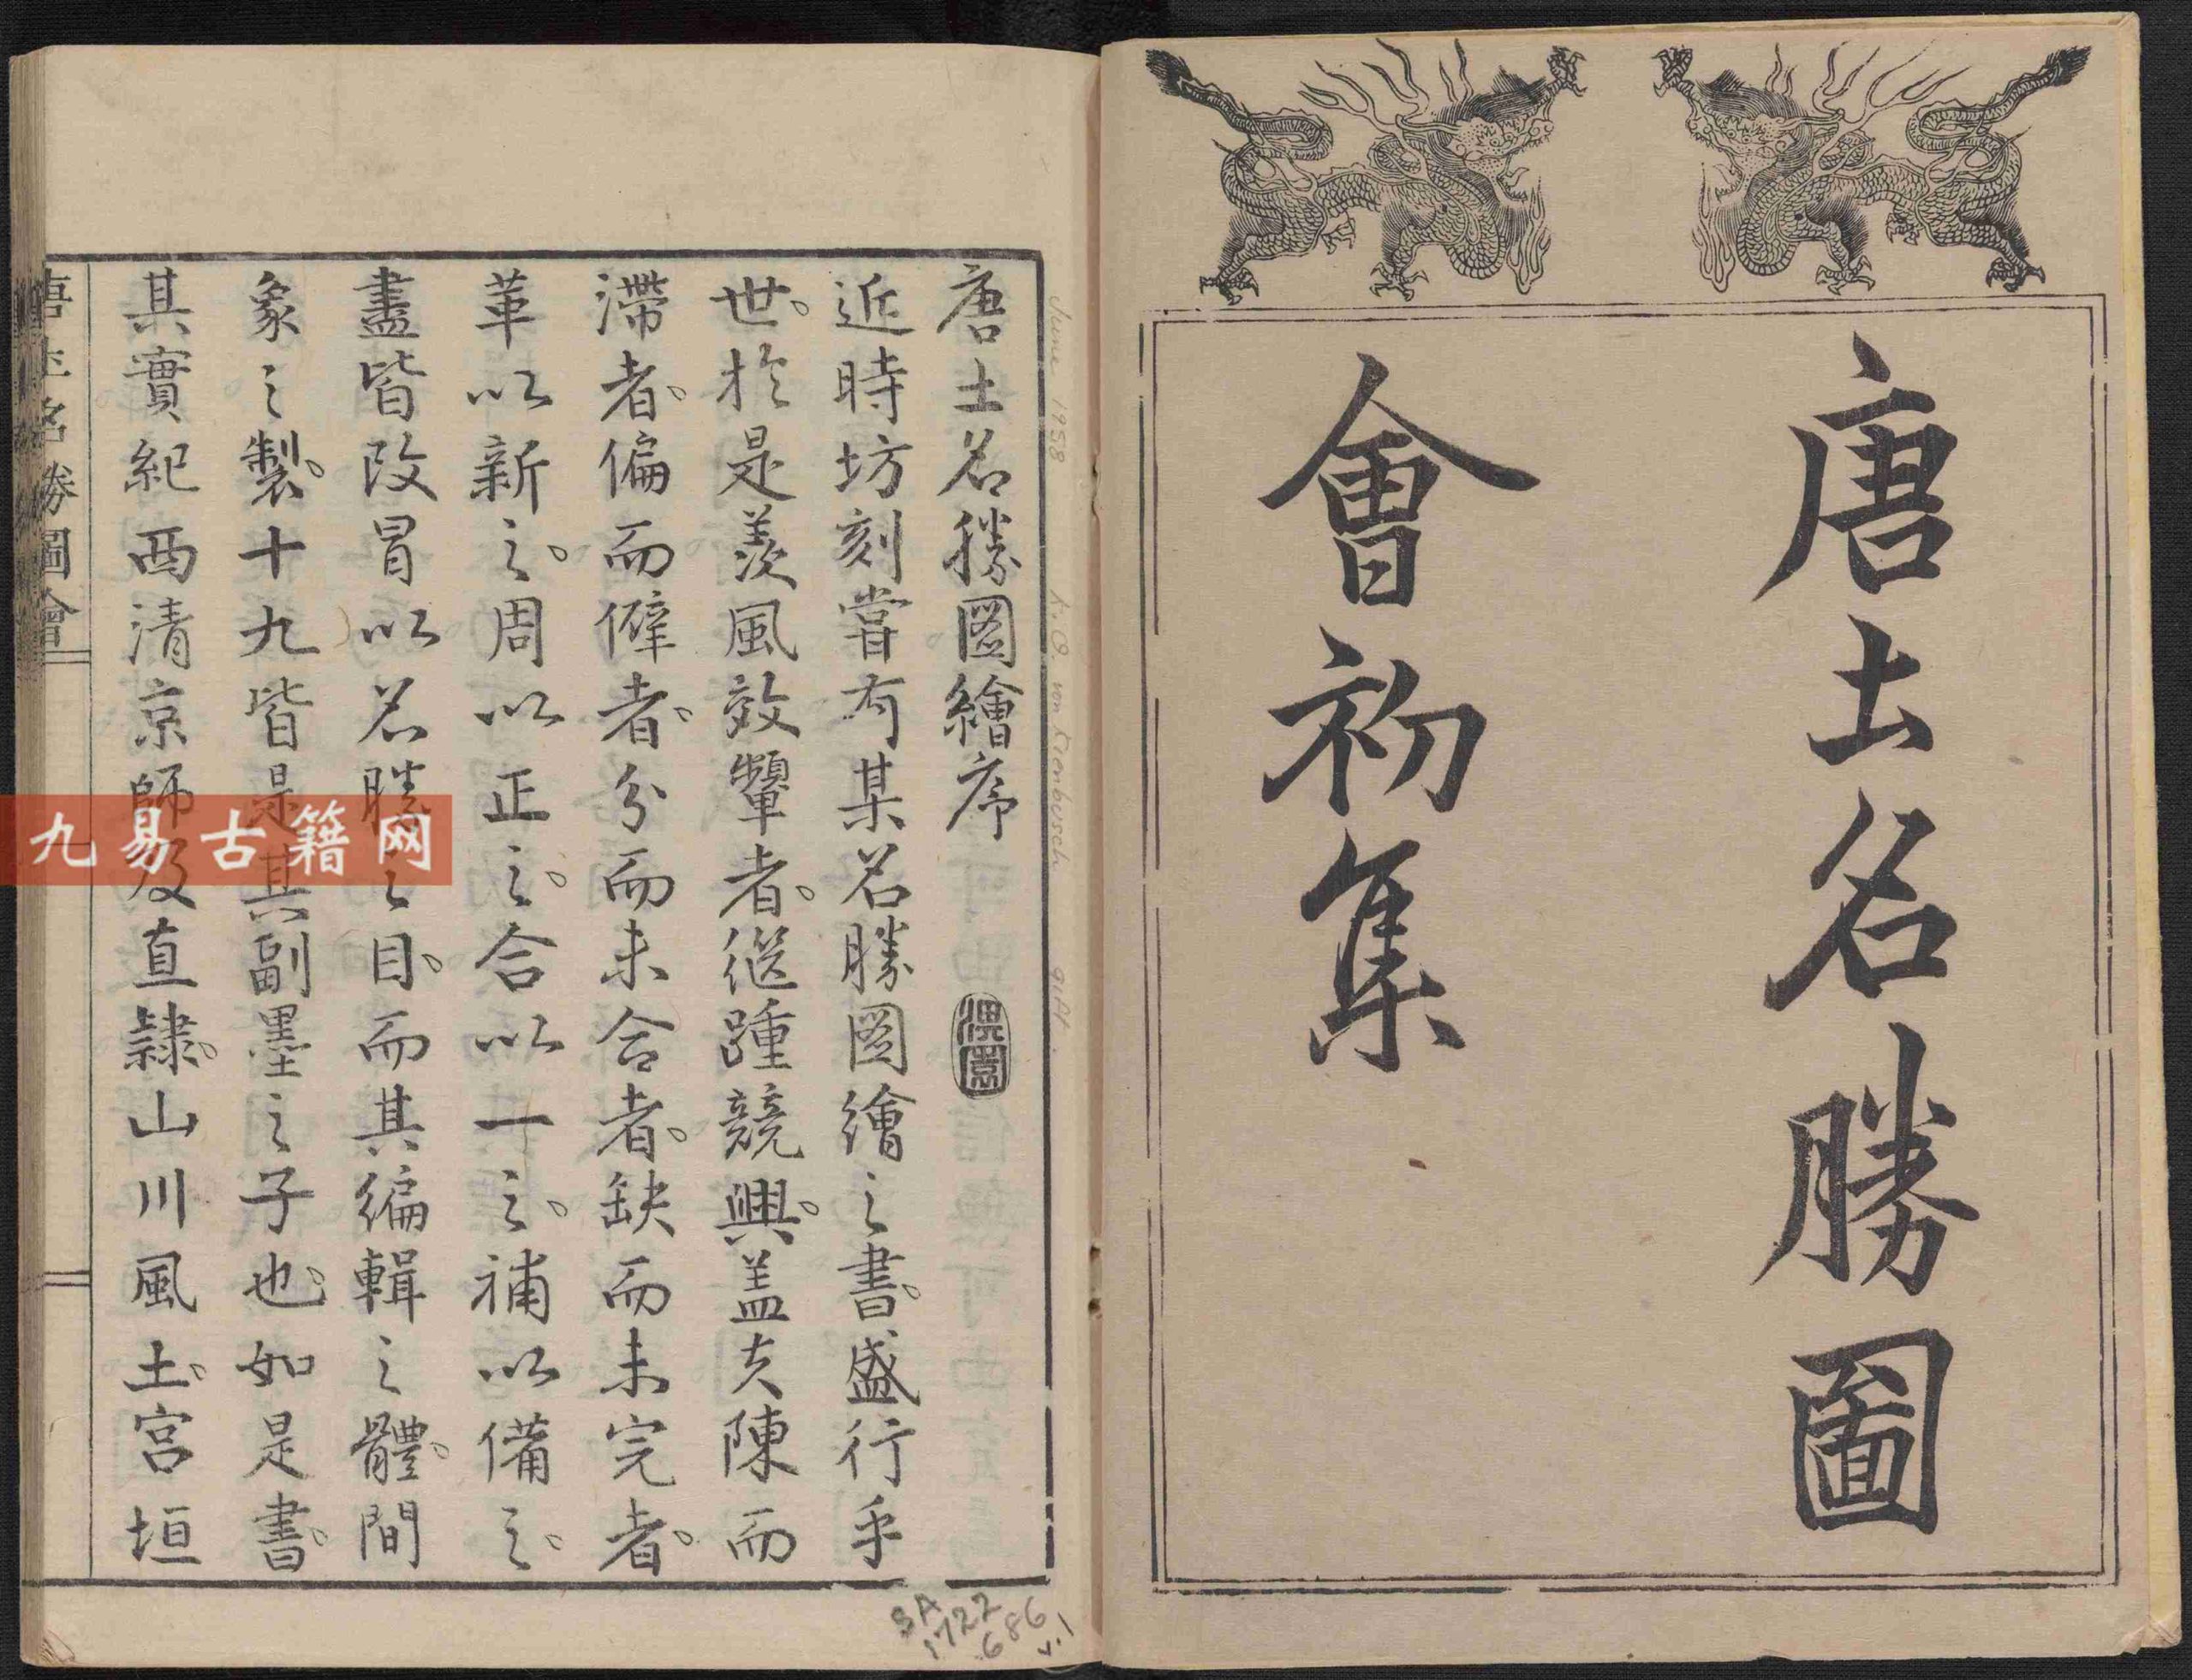 唐土名勝圖
會初集
唐土名勝圖繪序
近時坊刻嘗有某名勝圖繪之書。盛行乎
世。於是羨風效顰者。繼踵競興。盖夫陳而
滯者。偏而僻者。分而未合者。缺而未完者。
革以新之。周以正之。合以一之。補以備之。
盡皆改冒以名勝之目。而其編輯之體。間
象之製。十九皆是其副墨之子也。如是書。
其實紀西清京師及直隷。山川風土。宮垣
唐土名勝圖會
九易古籍网
June 1958
gift.
SA
1722
686
v.1